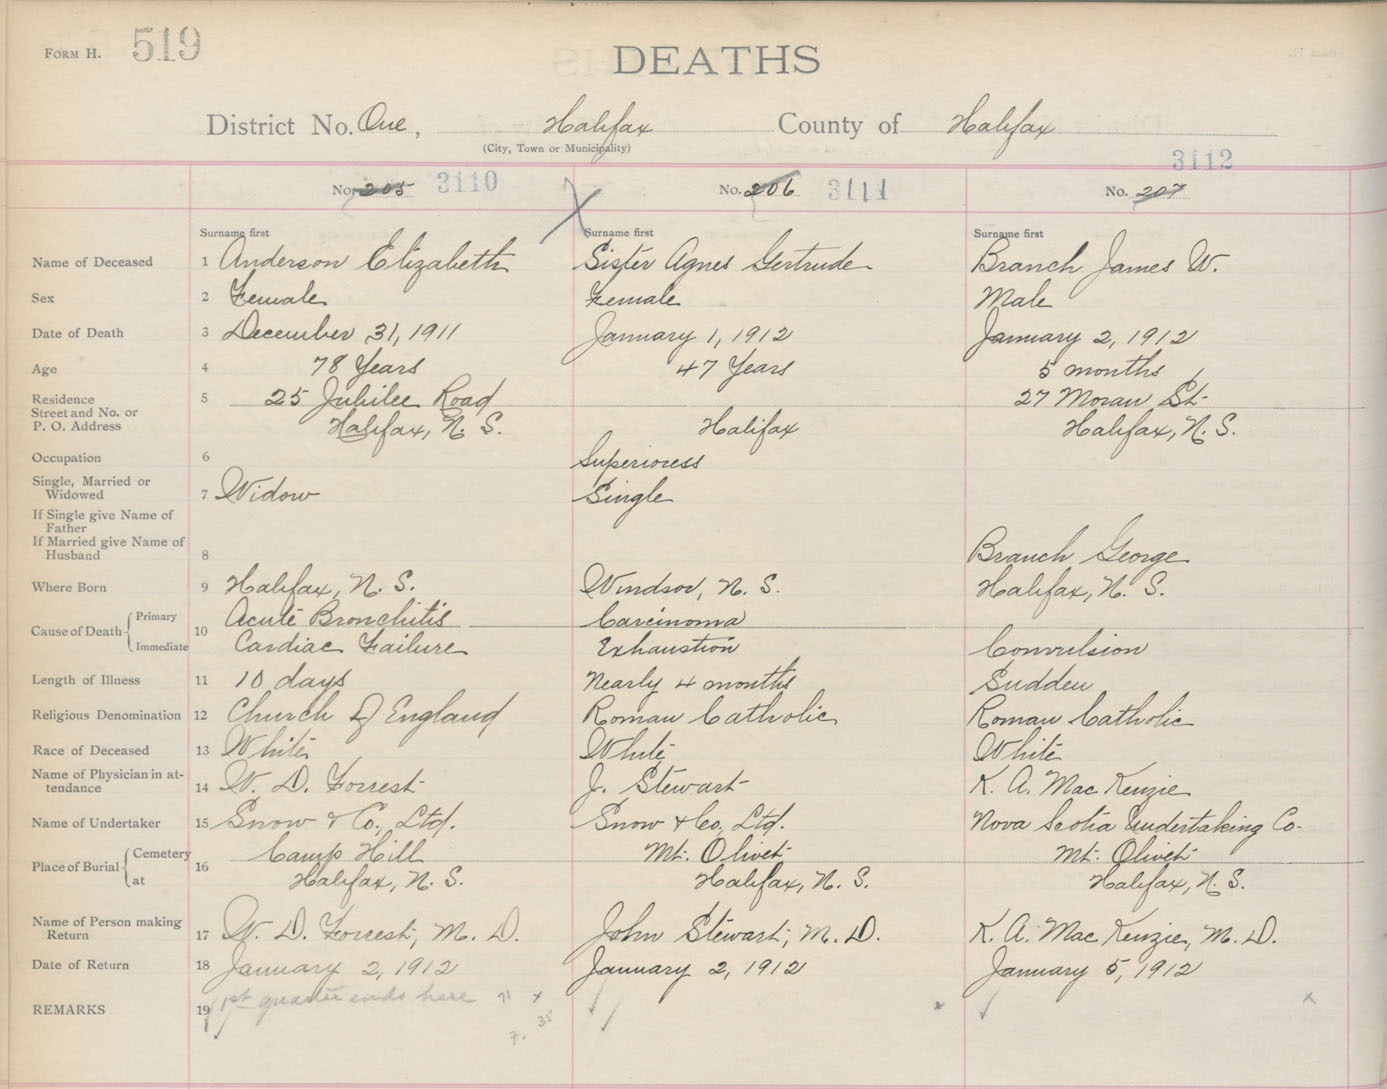 FORM H. 519
DEATHS
District No. One, Halifax County of Halifax
(City, Town or Municipality)
3112
No. 205 3110 No. 206 3111 No. 207
Surname first Surname first Surname first
Name of Deceased 1 Anderson Elizabeth Sister Agnes Gertrude Branch James W.
Sex 2 Female Female Male
Date of Death 3 December 31, 1911 January 1, 1912 January 2, 1912
Age 4 78 Years 47 Years 5 months
Residence 5 25 Jubilee Road 27 Moran St.
Street and No. or
P. O. Address Halifax, N. S. Halifax Halifax, N. S.
Occupation 6 Superioress
Single, Married or
Widowed 7 Widow Single
If Single give Name of
Father
If Married give Name of
Husband 8 Branch George
Where Born 9 Halifax, N. S. Windsor, N. S. Halifax, N. S.
Primary Acute Bronchitis Carcinoma
Cause of Death 10
Immediate Cardiac Failure Exhaustion Convulsion
Length of Illness 11 10 days Nearly 4 months Sudden
Religious Denomination 12 Church of England Roman Catholic Roman Catholic
Race of Deceased 13 White White White
Name of Physician in at-
tendance 14 W. D. Forrest J. Stewart K. A. MacKenzie
Name of Undertaker 15 Snow & Co, Ltd. Snow & Co, Ltd. Nova Scotia Undertaking Co.
Cemetery Camp Hill Mt. Olivet Mt. Olivet
Place of Burial 16
at Halifax, N. S. Halifax, N. S. Halifax, N. S.
Name of Person making
Return 17 W. D. Forrest, M. D. John Stewart, M. D. K. A. MacKenzie, M. D.
Date of Return 18 January 2, 1912 January 2, 1912 January 5, 1912
REMARKS 19 1st quarter ends here